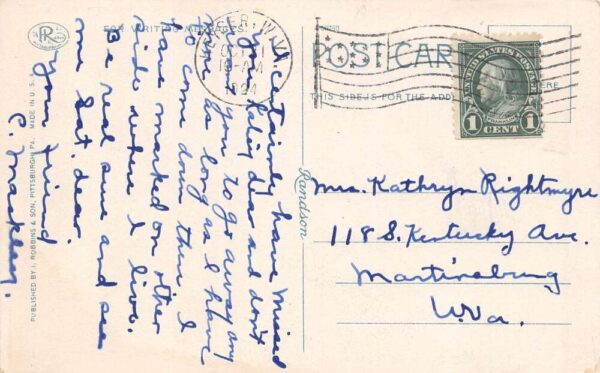 FOR WRITING MESSAGES
I certainly have missed
you Katy dear and don't
want you to go away any
more as long as I have
to come down there. I
have marked on other
side where I live.
Be real sure and see
me Sat. dear.
your friend
C. Mackley.
PUBLISHED BY I. ROBBINS & SON, PITTSBURGH, PA. MADE IN U.S.A.
W. VA.
10-AM
1924
POST CARD
THIS SIDE IS FOR THE ADD
HERE
UNITED STATES POSTAGE
FRANKLIN
1 CENT 1
Randson
Mrs. Kathryn Rightmyre
118 S. Kentucky Ave.
Martinsburg
W.Va.